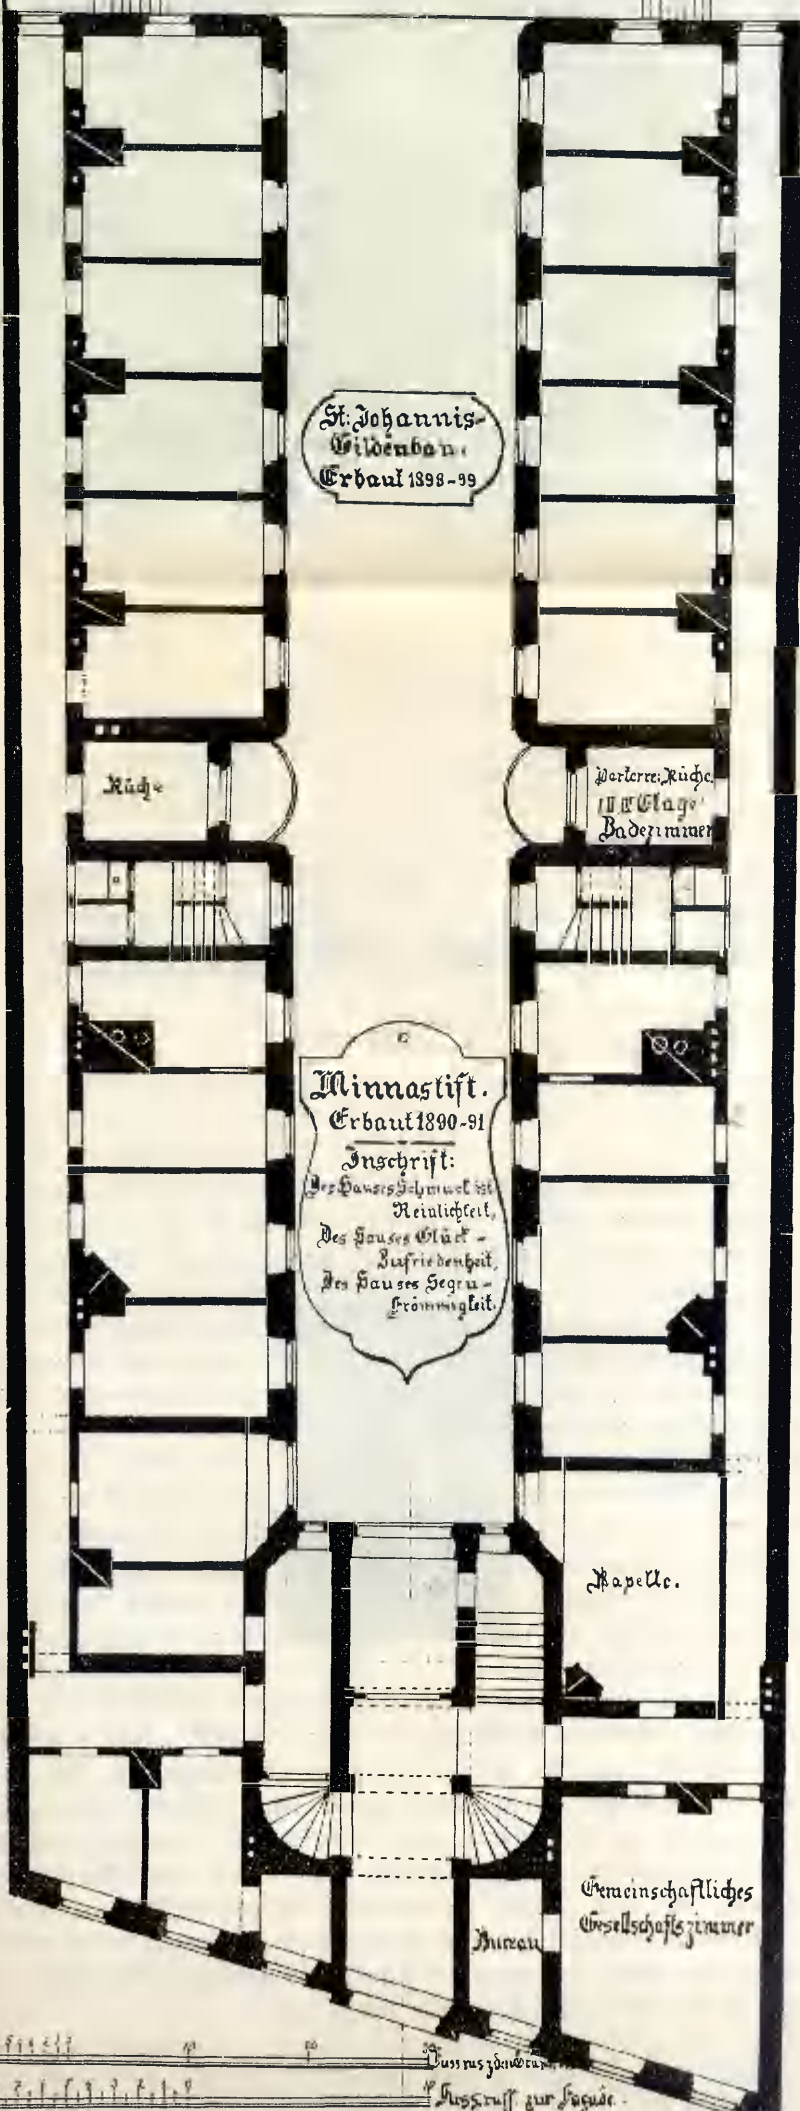 St: Johannis-
Gildenbau.
Erbaut 1898-99
Küche
Parterre: Küche.
Etage
Badezimmer
Minnastift.
Erbaut 1890-91
Inschrift:
Des Hauses Schmuck ist
Reinlichkeit,
Des Hauses Glück -
Zufriedenheit,
Des Hauses Segen -
Frömmigkeit.
Kapelle.
Gemeinschaftliches
Gesellschaftszimmer
Bureau
zur Façade.